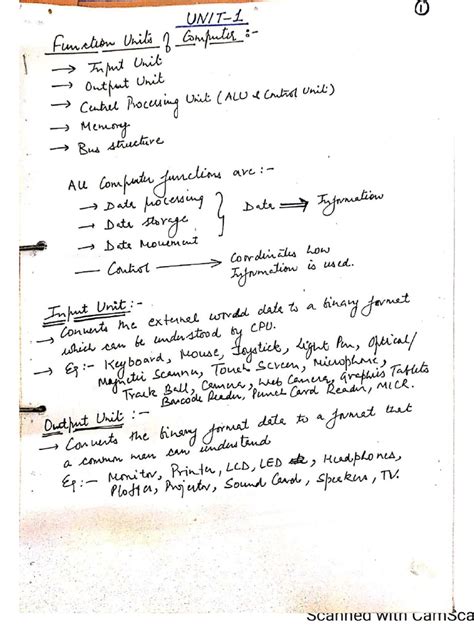 UNIT-1
①
Function Units of Computer :-
→ Input Unit
→ Output Unit
→ Central Processing Unit (ALU & Control Unit)
→ Memory
→ Bus structure
All Computer functions are :-
→ Data processing
→ Data storage
→ Data Movement
Data ⇒ Information
— Control → Coordinates How
Information is used.
Input Unit :-
→ Converts the external world data to a binary format
which can be understood by CPU.
→ Eg :- Keyboard, Mouse, Joystick, Light Pen, Optical/
Magnetic Scanner, Touch Screen, Microphone,
Track Ball, Camera, Web Camera, Graphics Tablets
Barcode Reader, Punch Card Reader, MICR.
Output Unit :-
→ Converts the binary format data to a format that
a common man can understand
Eg :- Monitor, Printer, LCD, LED, Headphones,
Plotter, Projector, Sound Card, Speakers, TV.
Scanned with CamSca